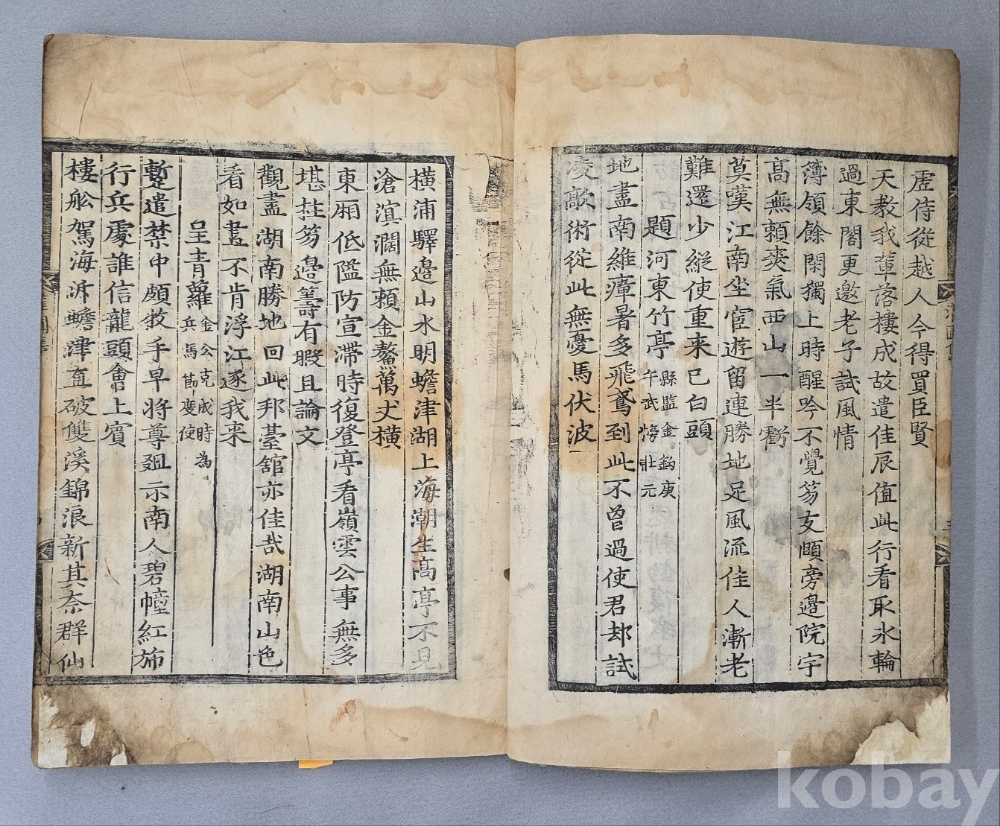 虛侍從越人今得買臣賢
天敎我輩落樓成故遣佳辰値此行看取氷輪
過東閣更邀老子試風情
薄領餘閑獨上時醒吟不覺笏支頤旁邊院宇
高無賴爽氣西山一半虧
莫嘆江南坐宦遊留連勝地足風流佳人漸老
難還少縱使重来已白頭
題河東竹亭 縣監金鈎庚午武擧壯元
地盡南維瘴暑多飛鳶到此不曾過使君却試
凌歊術從此無憂馬伏波
橫浦驛邊山水明蟾津湖上海潮生高亭不見
滄溟濶無賴金鰲萬丈橫
東廂低隘防宣滯時復登亭看嶺雲公事無多
堪拄笏邊籌有暇且論文
觀盡湖南勝地回此邦臺舘亦佳哉湖南山色
看如畫不肯浮江逐我来
呈靑蘿 金公克成時爲兵馬都變使
蹔遣禁中頗牧手早將尊俎示南人碧幢紅旆
行兵處誰信龍頭會上賓
樓舩駕海泝蟾津直破雙溪錦浪新其奈群仙
kobay